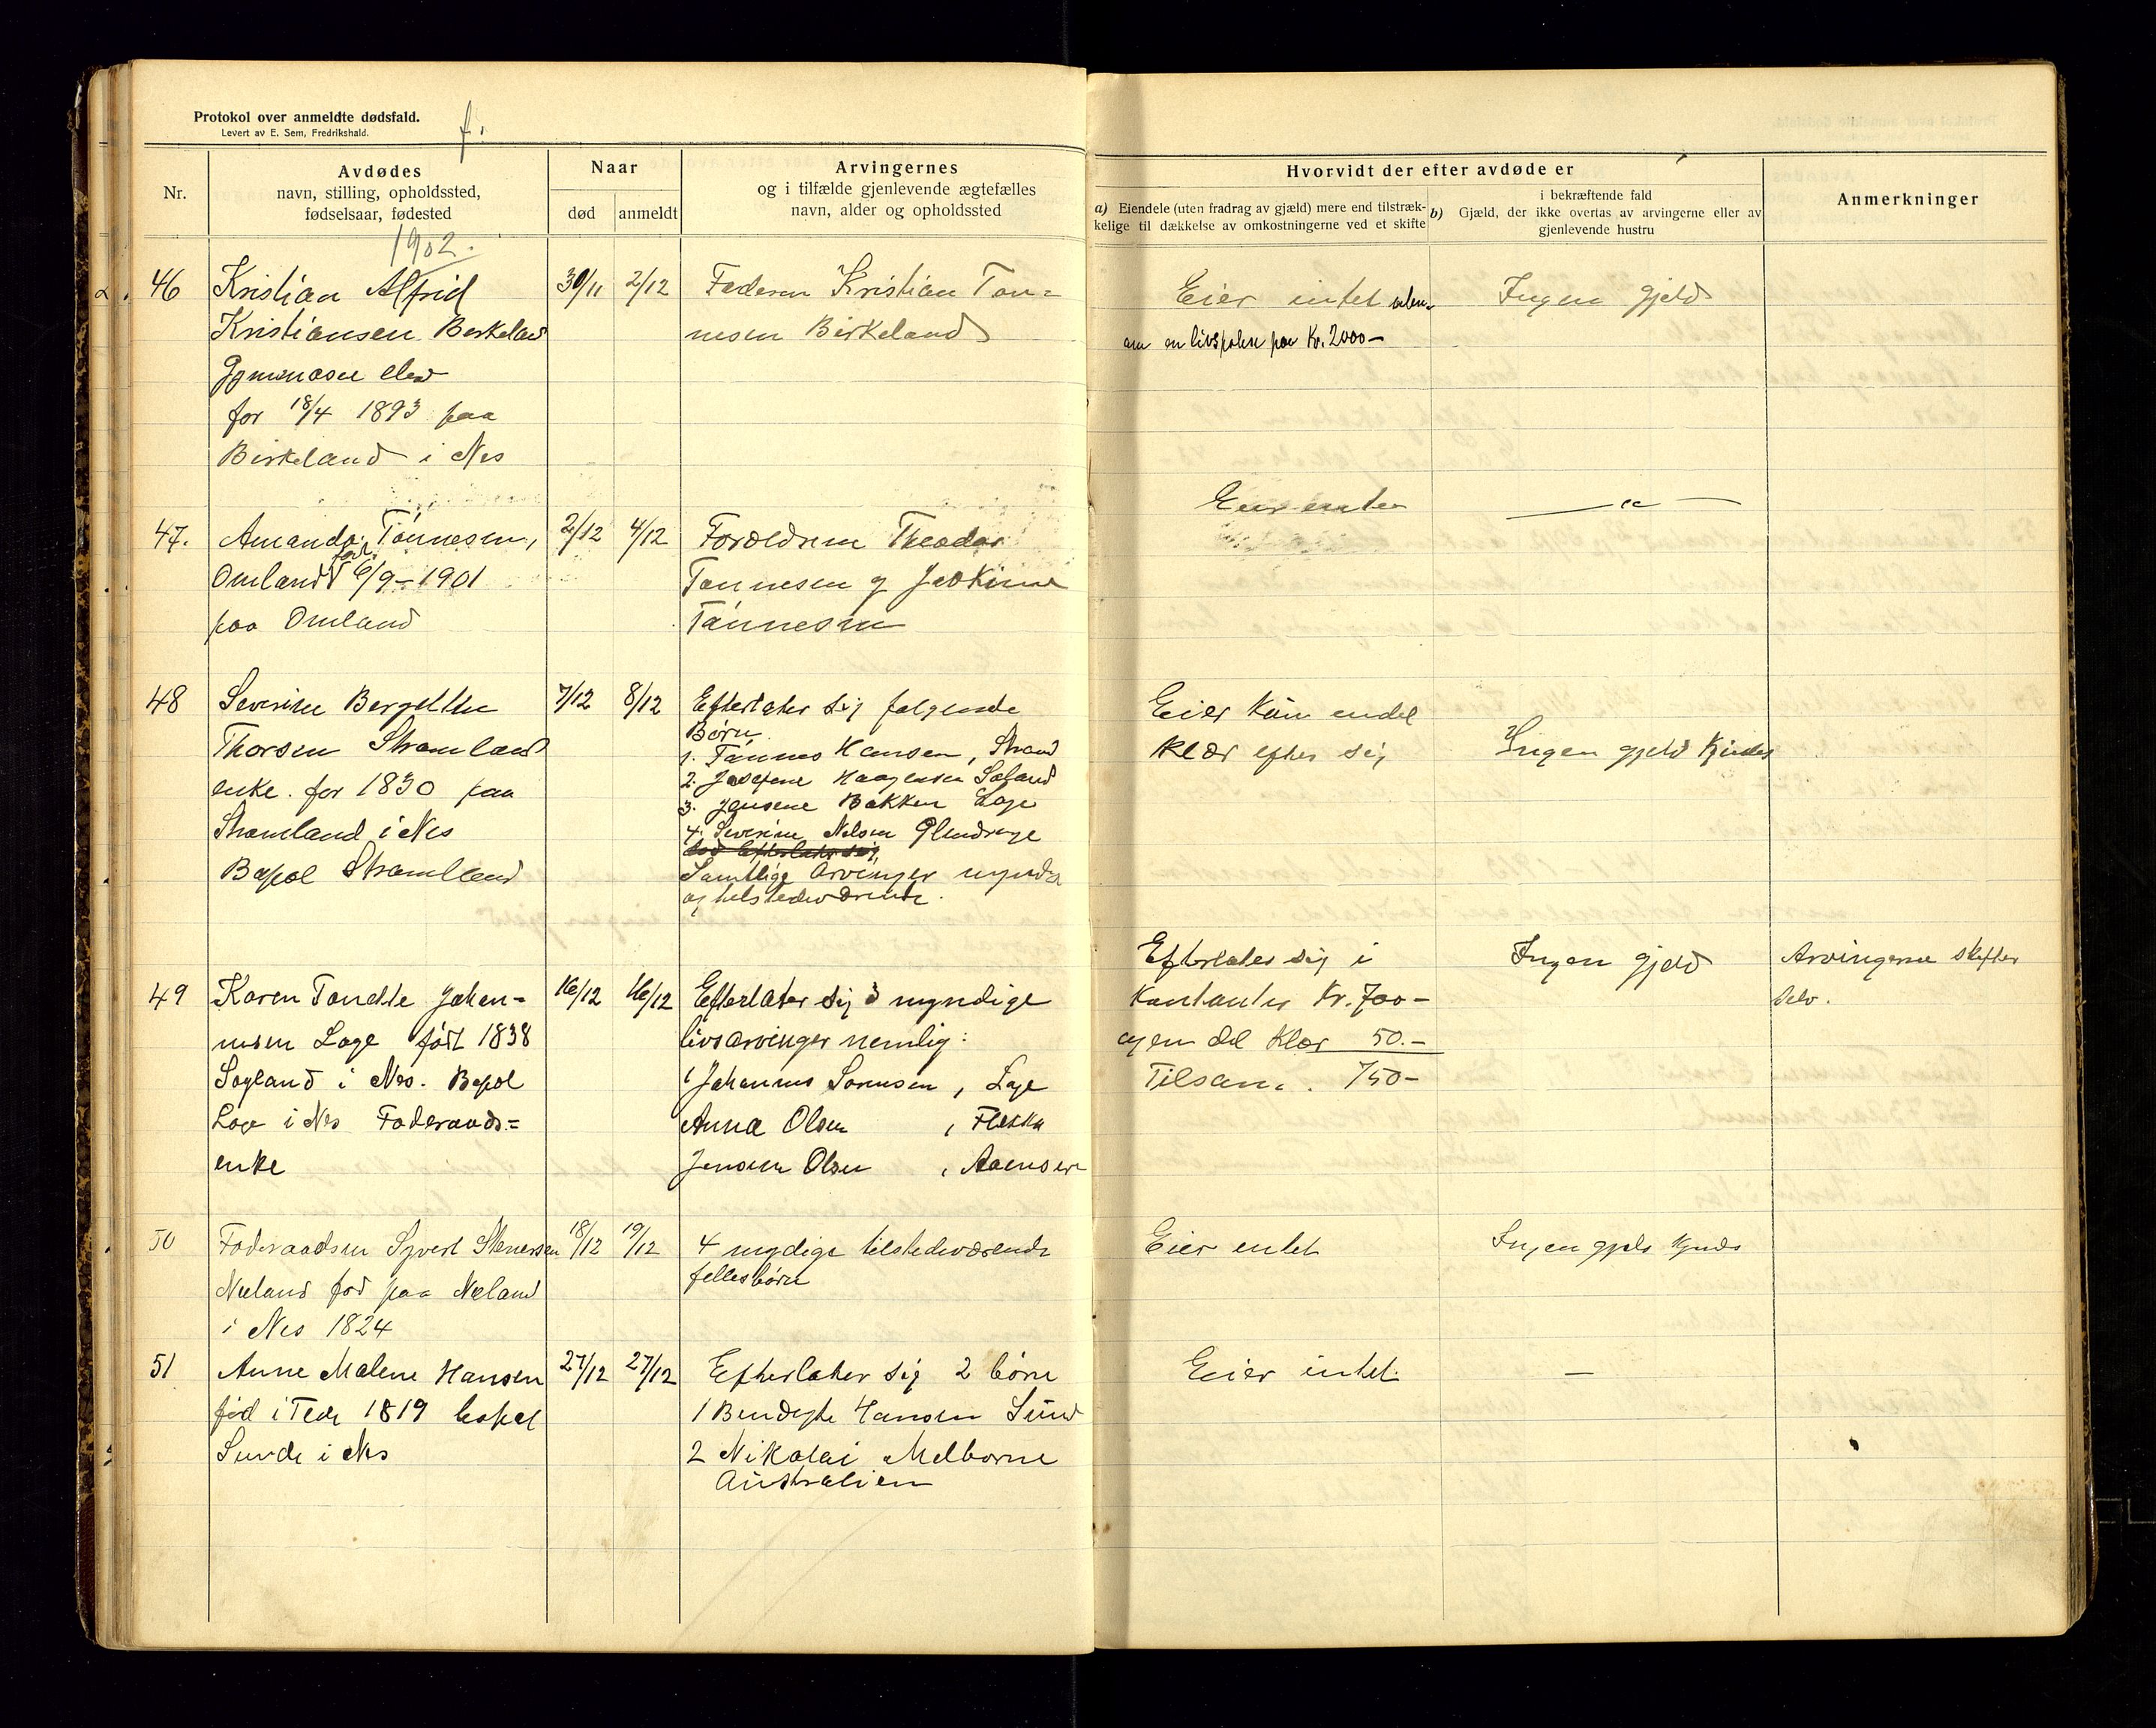 Protokol over anmeldte dødsfald.
Levert av E. Sem, Fredrikshald.
Nr.
Avdødes
navn, stilling, opholdssted,
fødselsaar, fødested
Naar
død
anmeldt
Arvingernes
og i tilfælde gjenlevende ægtefælles
navn, alder og opholdssted
Hvorvidt der efter avdøde er
a) Eiendele (uten fradrag av gjæld) mere end tilstræk-
kelige til dækkelse av omkostningerne ved et skifte
i bekræftende fald
b) Gjæld, der ikke overtas av arvingerne eller av
gjenlevende hustru
Anmerkninger
1902.
46
Kristian Alfrid
Kristiansen Birkeland
Gymnasie elev
for 18/4 1893 paa
Birkeland i Nes
30/11
2/12
Faderen Kristian Tøn=
nesen Birkeland
Eier intet uten-
om en livspolise paa Kr. 2000-
Ingen gjeld
47.
Amanda Tønnesen,
Omland fød. 6/9-1901
paa Omland
2/12
4/12
Forældrene Theodor
Tønnesen og Joakime
Tønnesen
Eier intet
— " —
48
Severine Bergitte
Thorsen Stramland
enke. for 1830 paa
Stramland i Nes
Bopæl Stramland
7/12
8/12
Efterlater sig følgende
Børn
1. Tønnes Hansen, Strand
2. Josefine Haagensen
3. Jensene Bakken Loge
4. Severine Nelsen
Samtlige Arvinger myndige
og tilstedeværende.
Eier kun endel
klær efter sig
Ingen gjeld kjendes
49
Karen Tonette Johan-
nesen Loge født 1838
Sogland i Nes. Bopæl
Loge i Nes Føderaads=
enke
16/12
16/12
Efterlater sig 3 myndige
livsarvinger nemlig:
Johannes Sørensen, Loge
Anna Olsen, Flekke
Jensen Olsen,
Efterlater sig i
Kontanter Kr. 700-
og en del Klær 50.-
Tilsam. 750-
Ingen gjeld
Arvingerne skifter
selv.
50
Føderaadsm Syvert Stenersen
Næland fød paa Næland
i Nes 1824
18/12
19/12
4 mydige tilstedeværende
fellesbørn
Eier entet
Ingen gjeld kjends
51
Anne Malene Hansen
fød i 1819 bopæl
Sunde i Nes
27/12
27/12
Efterlater sig 2 børn
1 Bendigte Hansen Sund
2 Nikolai Melborne
Australien
Eier intet.
—